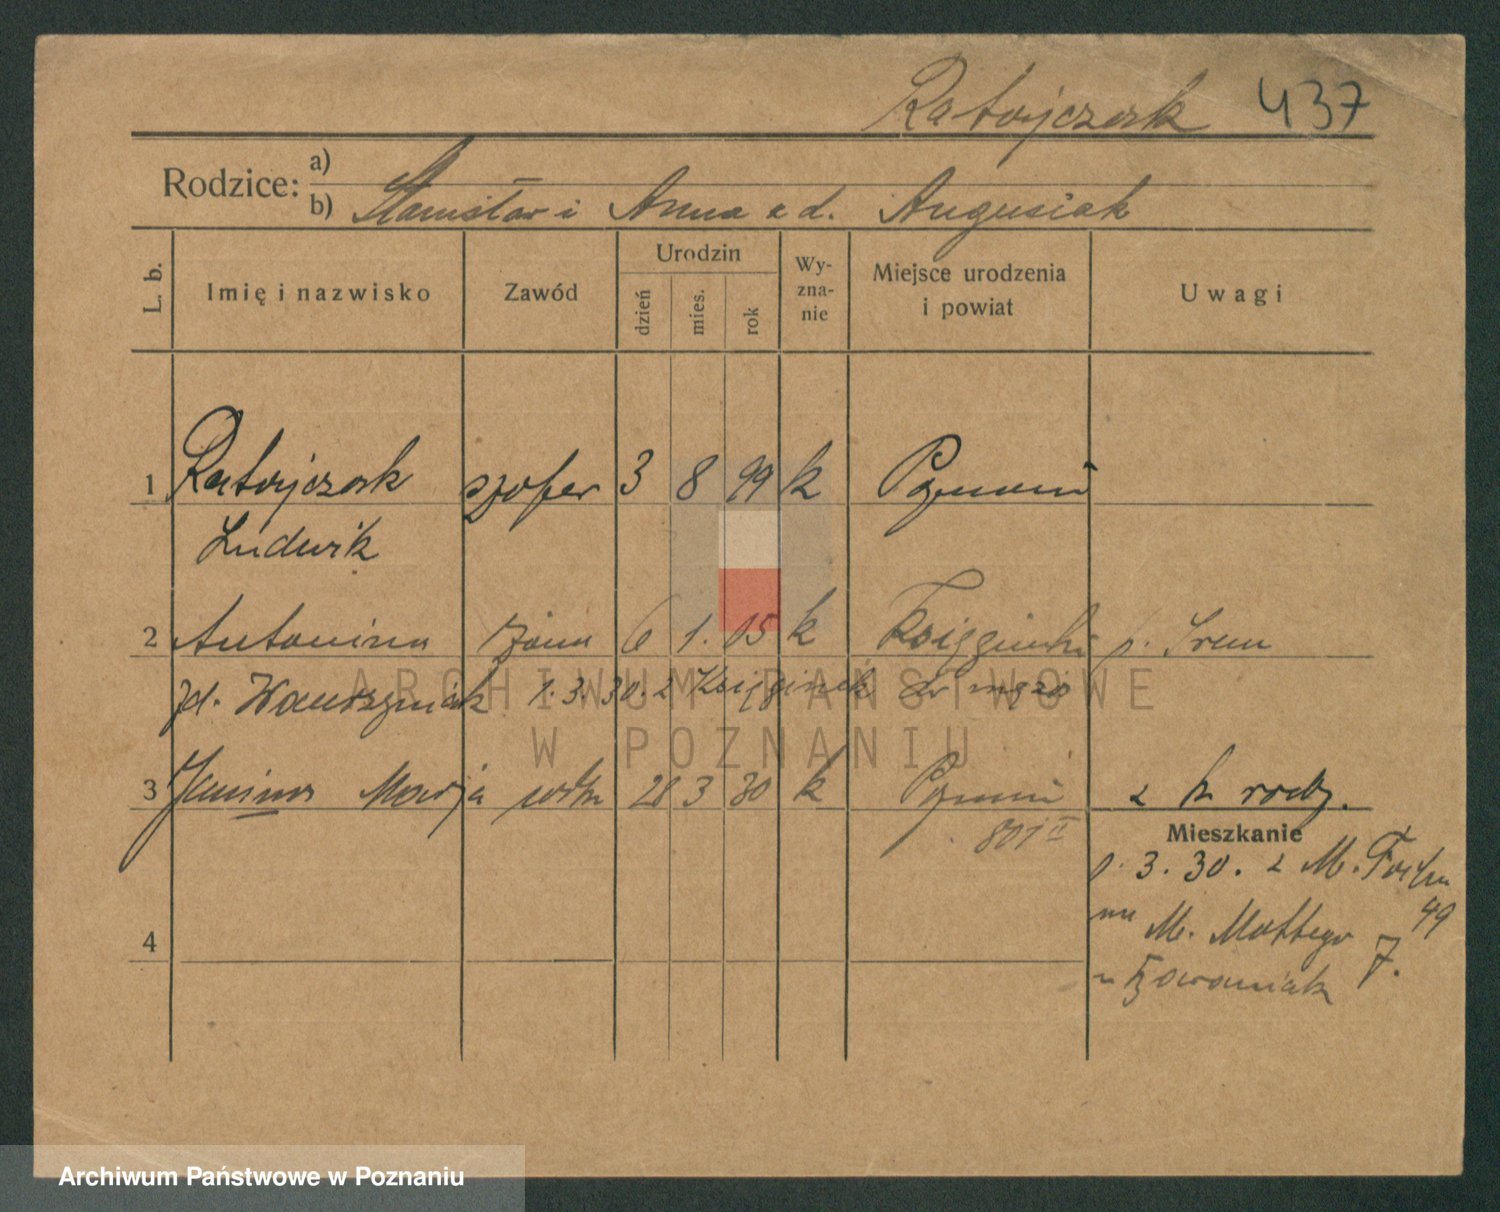 Ratajczak 437
Rodzice: a)
b) Stanisław i Anna z d. Augusiak
L. b. Imię i nazwisko Zawód Urodzin dzień mies. rok Wy-zna-nie Miejsce urodzenia i powiat Uwagi
1 Ratajczak szofer 3 8 99 k Poznań
Ludwik
2 Antonina żona 6 1. 05 k Książinki p. Śrem
zd. Wawrzyniak 1. 3. 30. z Książinek do męża
ARCHIWUM PAŃSTWOWE
W POZNANIU
3 Janina Marja córka 28 3 30 k Poznań z k. rodz.
801 II
Mieszkanie
3. 30. z M. Focha 49
na M. Mottego 7.
4
u
Archiwum Państwowe w Poznaniu